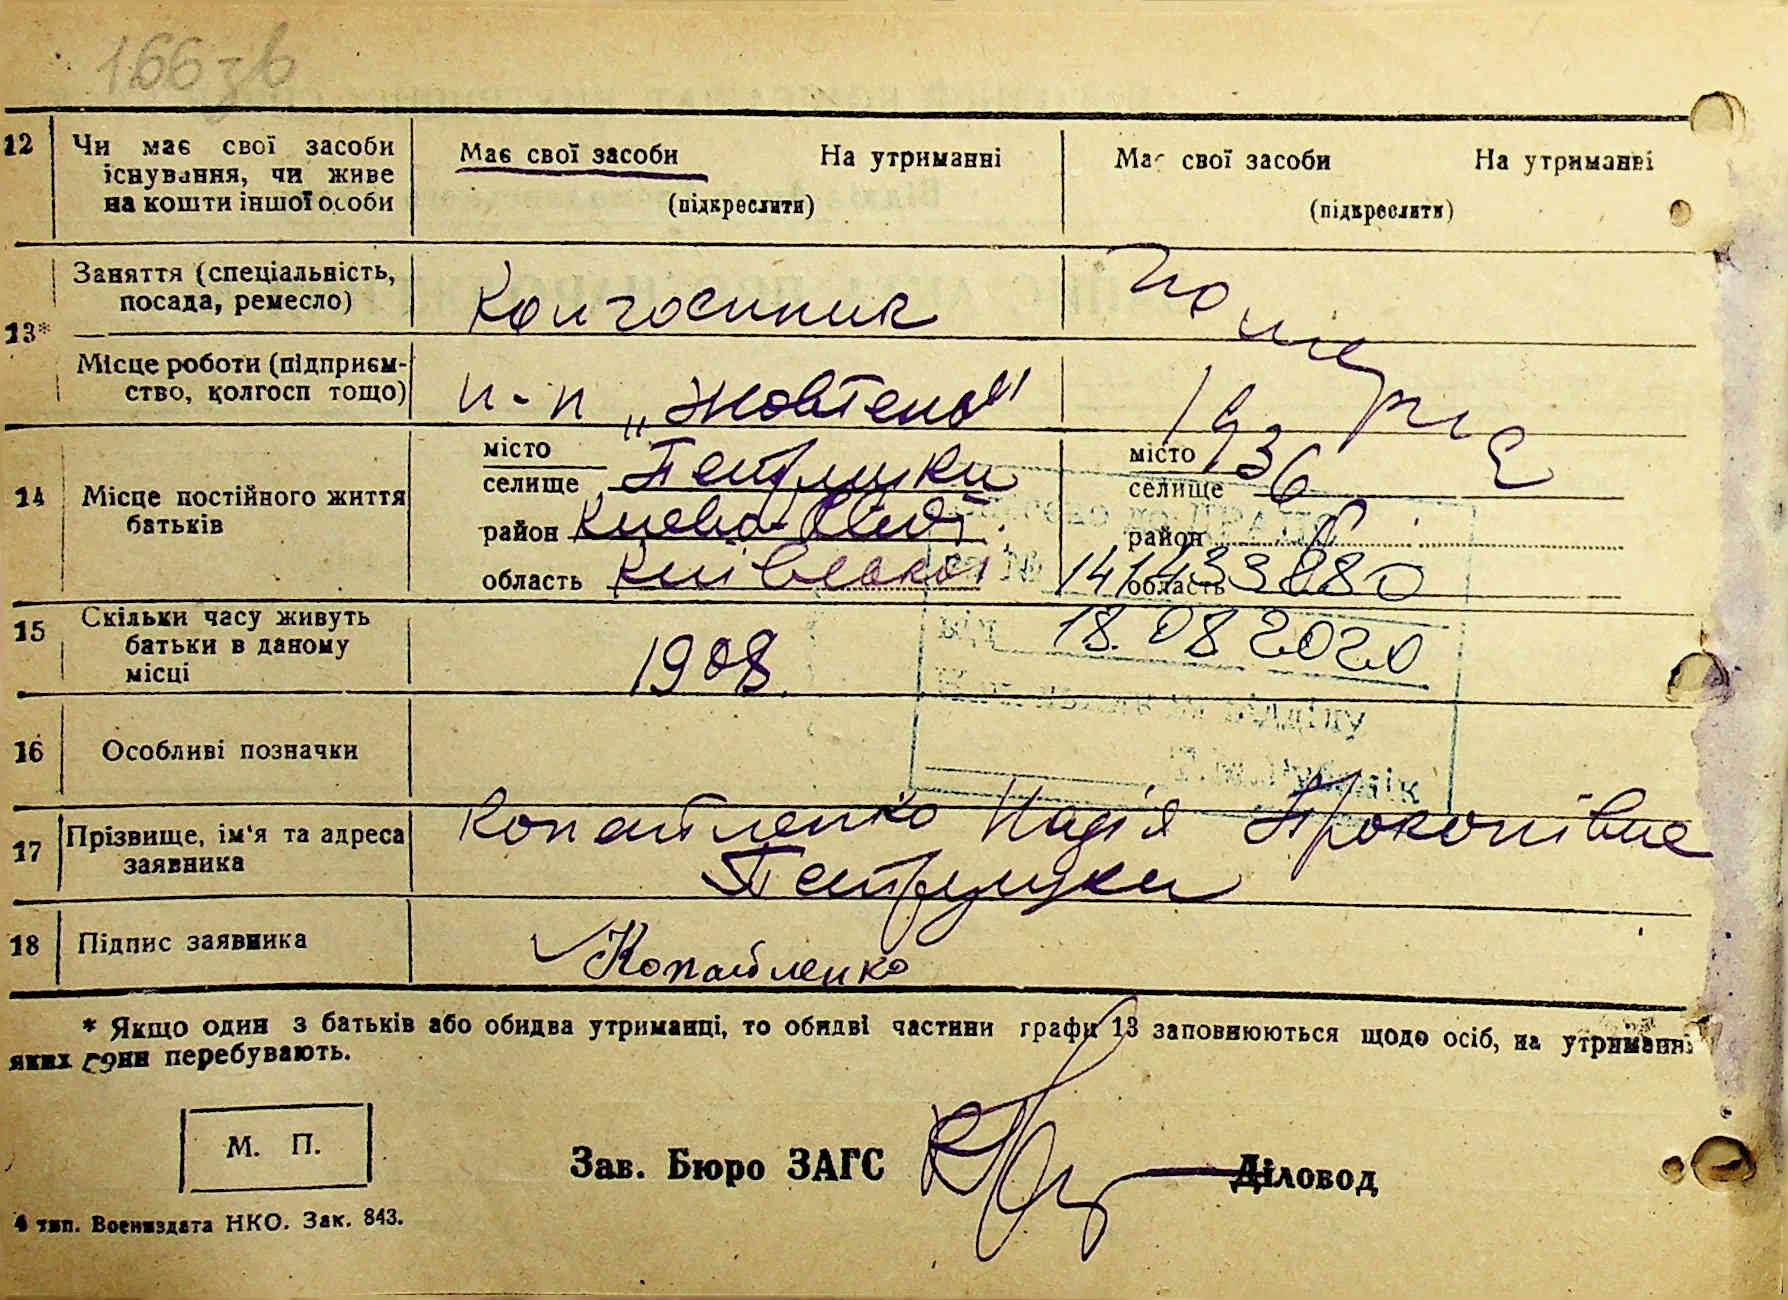 166 зв
12 Чи має свої засоби існування, чи живе на кошти іншої особи
Має свої засоби На утриманні
(підкреслити)
Має свої засоби На утриманні
(підкреслити)
13*
Заняття (спеціальність, посада, ремесло)
Колгоспник
Місце роботи (підприємство, колгосп тощо)
к-п „Жовтень"
помер
1936 р
14 Місце постійного життя батьків
місто
селище Петрушки
район Києво-Свят.
область Київської
місто
селище
район
область
1414
880
18.08 2020
15 Скільки часу живуть батьки в даному місці
1908
16 Особливі позначки
17 Прізвище, ім'я та адреса заявника
Копайленко Надія Прокопівна
Петрушки
18 Підпис заявника
Копайленко
* Якщо один з батьків або обидва утриманці, то обидві частини графи 13 заповнюються щодо осіб, на утриманні
яких вони перебувають.
М. П.
Зав. Бюро ЗАГС
Діловод
4 тип. Воениздата НКО. Зак. 843.